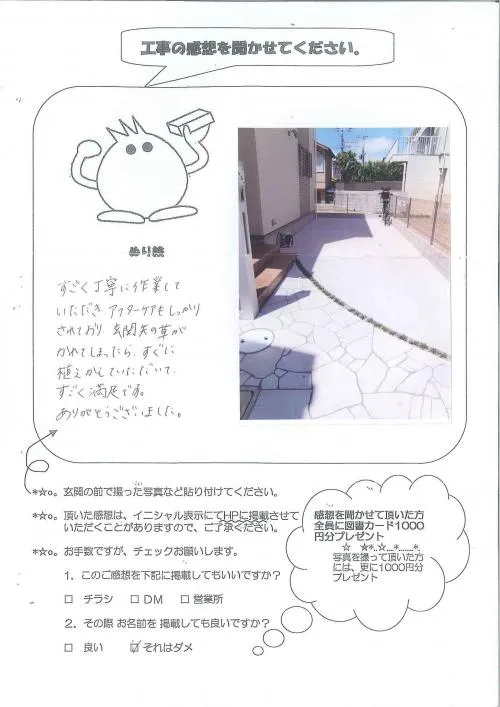 工事の感想を聞かせてください。
ぬり絵
すごく丁寧に作業して
いただき アフターケアもしっかり
されており、玄関先の草が
かれてしまったら、すぐに
植えかえていただいて、
すごく満足です。
ありがとうございました。
*☆o。玄関の前で撮った写真など貼り付けてください。
*☆o。頂いた感想は、イニシャル表示にてHPに掲載させて
いただくことがありますので、ご了承ください。
*☆o。お手数ですが、チェックお願いします。
1．このご感想を下記に掲載してもいいですか？
□ チラシ □ DM □ 営業所
2．その際 お名前を 掲載しても良いですか？
□ 良い ☑ それはダメ
感想を聞かせて頂いた方
全員に図書カード1000
円分プレゼント
☆ ☆*..☆....*........*.
写真を撮って頂いた方
には、更に1000円分
プレゼント